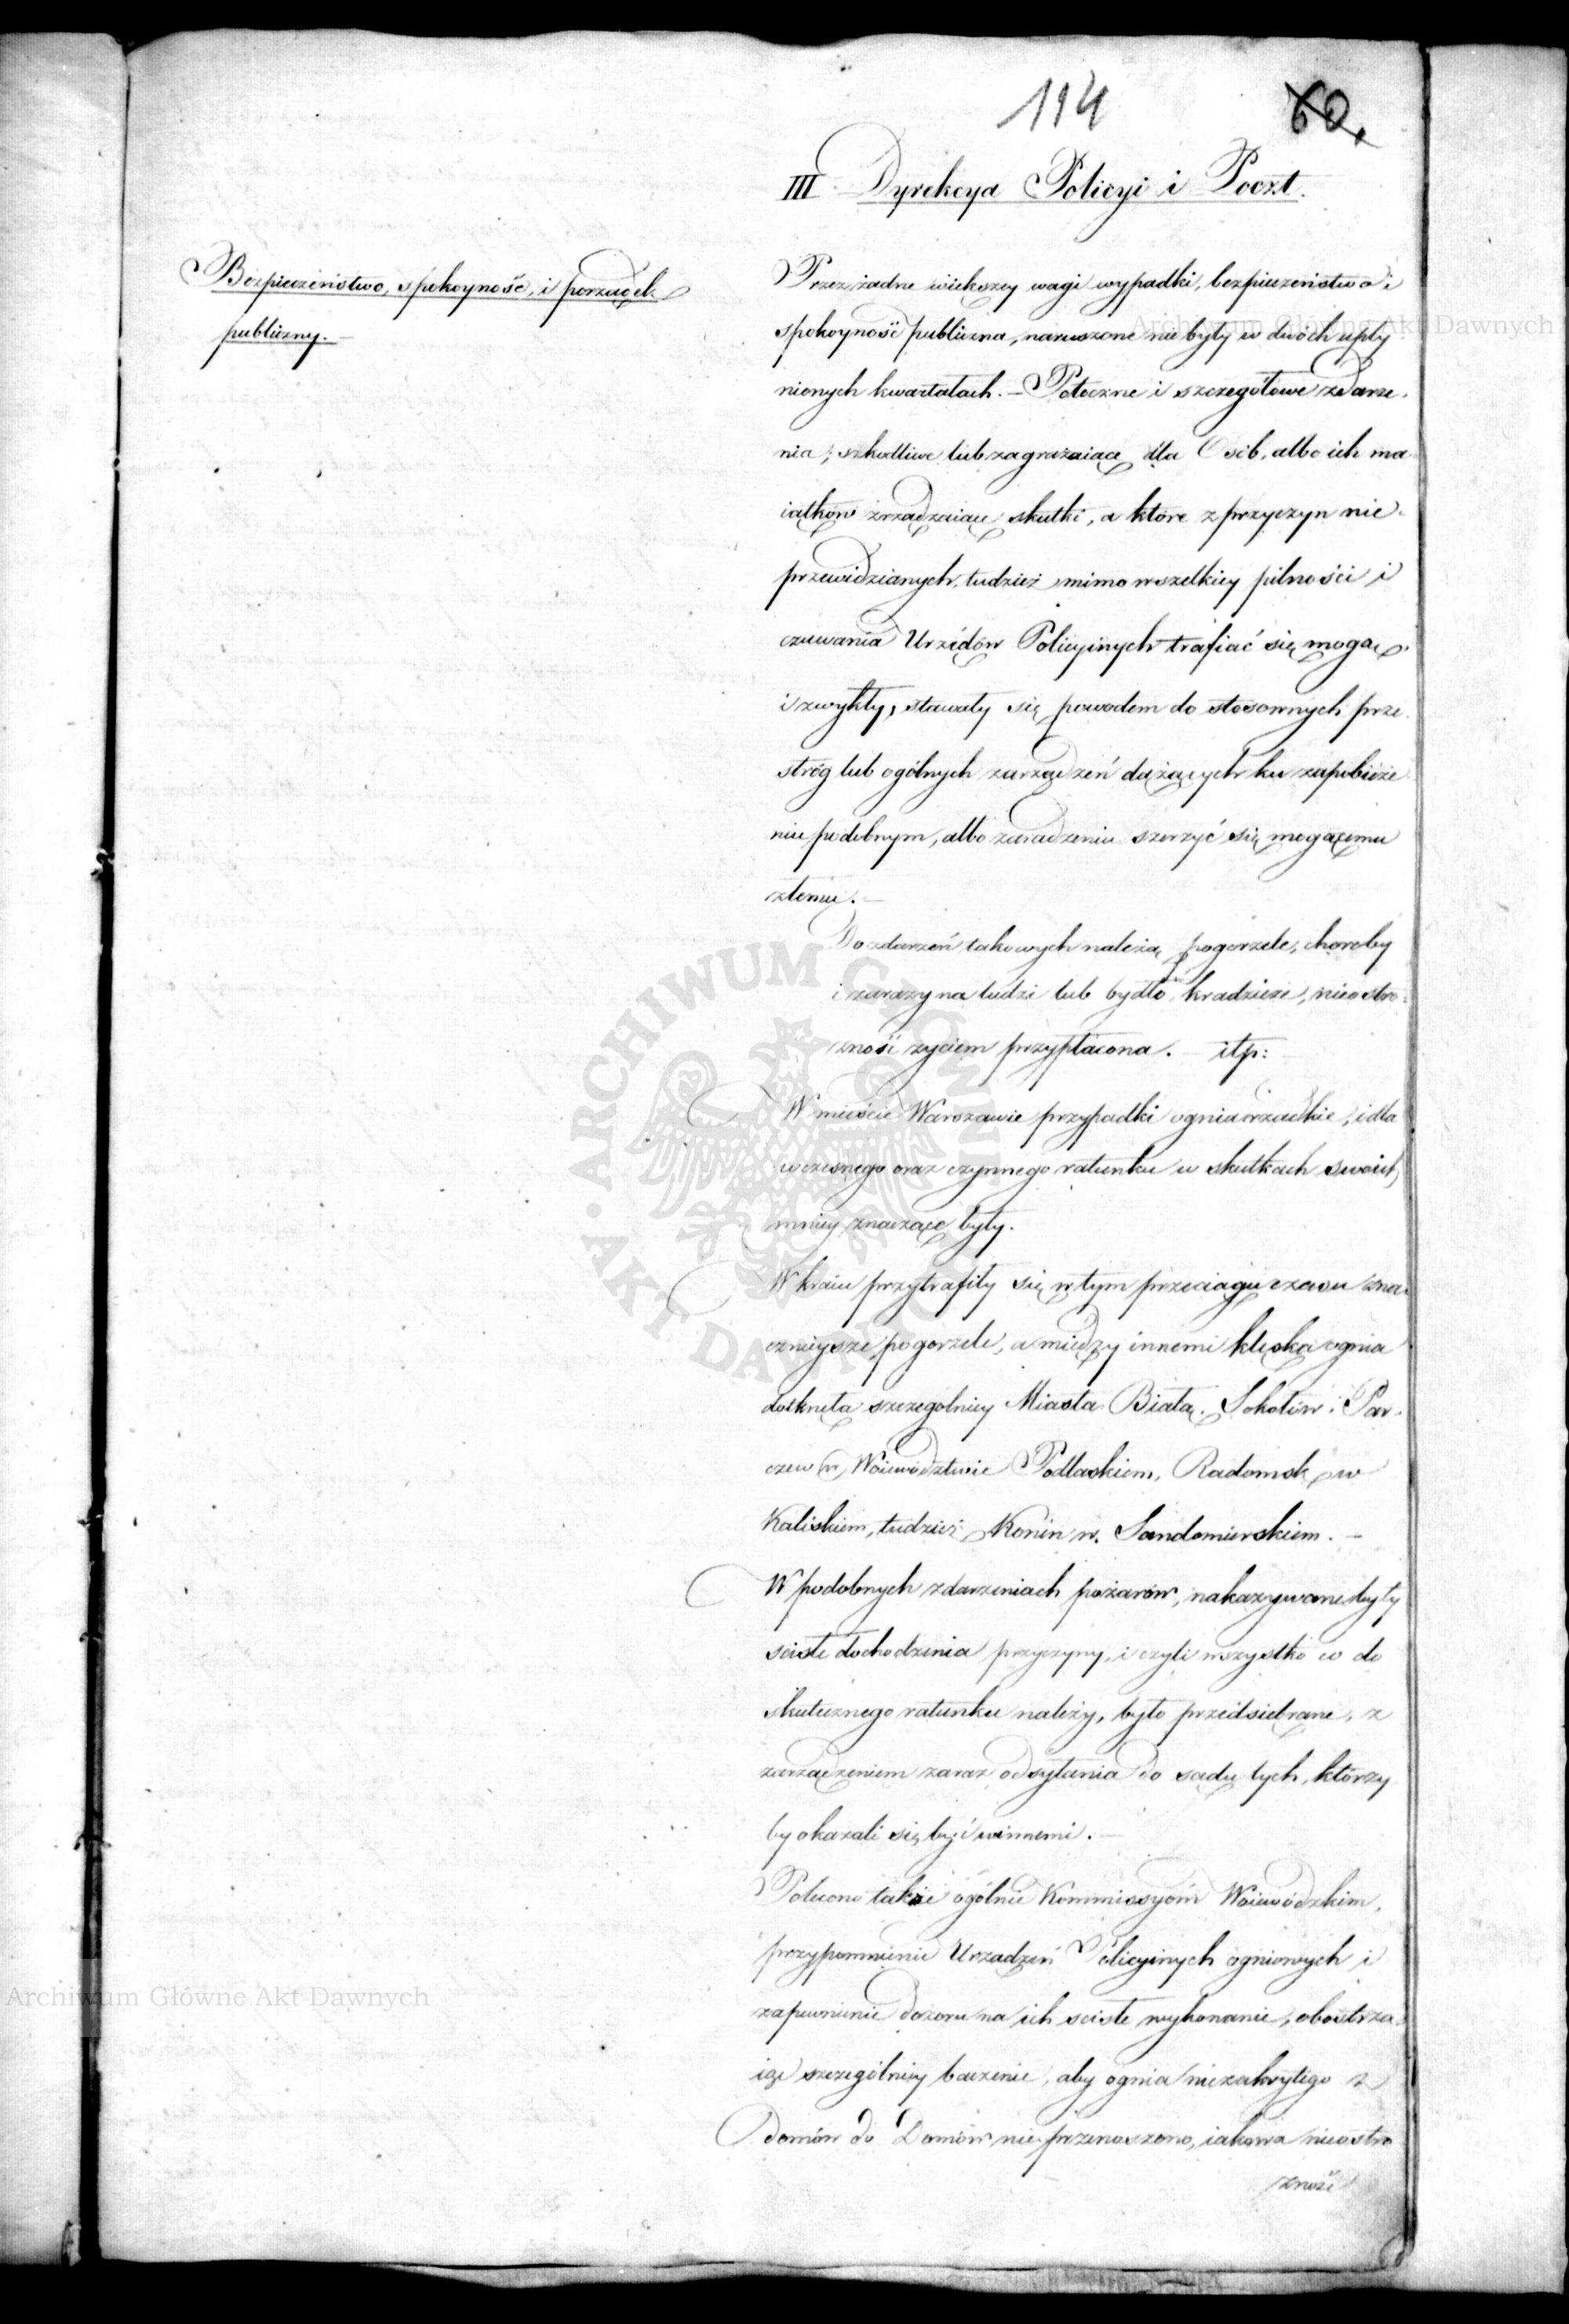 114
60.
III Dyrekcya Policyi i Poczt.
Bezpieczeństwo, spokoyność, i porządek
publiczny. —
Przez żadne większey wagi wypadki, bezpieczeństwo i
spokoyność publiczna, naruszone nie były w dwóch upły
nionych kwartałach. — Potoczne i szczegółowe zdarze-
nia, szkodliwe lub zagrażaiące dla Osób, albo ich ma
iątków zrządzaiąc skutki, a które z przyczyn nie-
przewidzianych, tudzież mimo wszelkiey pilności i
czuwania Urzędów Policyinych trafiać się mogą
i zwykły, stawały się powodem do stosownych prze
stróg lub ogólnych zarządzeń dążących ku zapobieże
niu podobnym, albo zaradzeniu szerzyć się mogącemu
złemu. —
Do zdarzeń takowych należą pogorzele, choroby
i zarazy na ludzi lub bydło, kradzieże, nieostro-
żność życiem przypłacona. — itp:
W mieście Warszawie przypadki ognia rzadkie, i dla
wczesnego oraz czynnego ratunku w skutkach swoich
mniey znaczące były.
W kraiu przytrafiły się w tym przeciągu czasu zna-
cznieysze pogorzele, a między innemi klęska ognia
dotknęła szczególniey Miasta Białą, Sokołów i Par-
czew w Woiewództwie Podlaskiem, Radomsk w
Kaliskiem, tudzież Konin w Sandomierskiem. —
W podobnych zdarzeniach pożarów, nakazywane były
scisłe dochodzenia przyczyny, i czyli wszystko co do
skutecznego ratunku należy, było przedsiebrane, z
zarządzeniem zaraz odsyłania do sądu tych, którzy
by okazali się być winnemi. —
Polecono także ogólnie Kommissyóm Woiewódzkim,
przypomnienie Urządzeń Policyinych ogniowych i
zapewnienie dozoru na ich scisłe wykonanie, obostrza
iąc szczególniey baczenie, aby ognia niezakrytego z
Domów do Domów nie przenoszono, iakowa nieostro
żność
Archiwum Główne Akt Dawnych
Archiwum Główne Akt Dawnych
ARCHIWUM GŁÓWNE AKT DAWNYCH